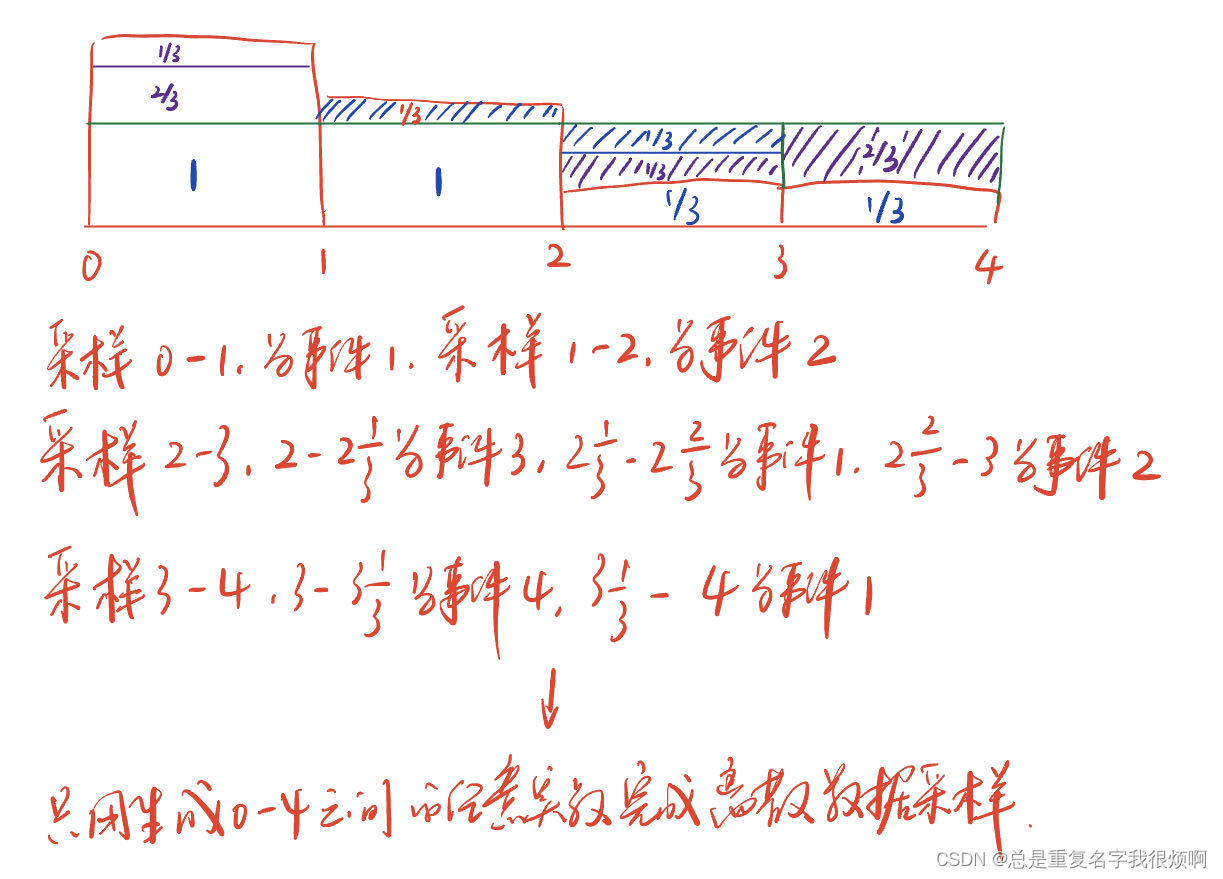 1/3
2/3
1/3
1/3
2/3
1
1
1/3
1/3
1/3
0 1 2 3 4
采样 0-1. 为事件1. 采样 1-2. 为事件2
采样 2-3. 2-2 1/3 为事件3, 2 1/3 - 2 2/3 为事件1. 2 2/3 - 3 为事件2
采样 3-4. 3-3 1/3 为事件4, 3 1/3 - 4 为事件1
↓
只用生成0-4之间的任意实数完成离散数据采样.
CSDN @总是重复名字我很烦啊